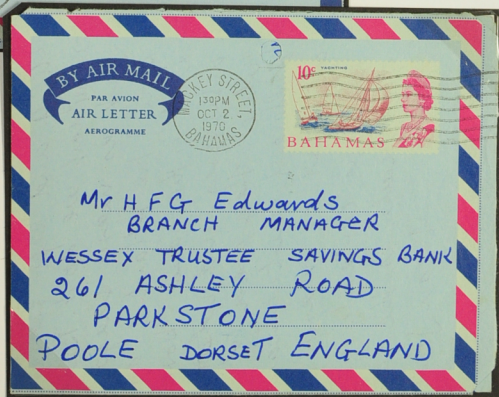 BY AIR MAIL
PAR AVION
AIR LETTER
AEROGRAMME
MACKEY STREET,
130PM
OCT 2
1970
BAHAMAS
10c YACHTING
BAHAMAS
Mr H F G Edwards
BRANCH MANAGER
WESSEX TRUSTEE SAVINGS BANK
261 ASHLEY ROAD
PARKSTONE
POOLE DORSET ENGLAND